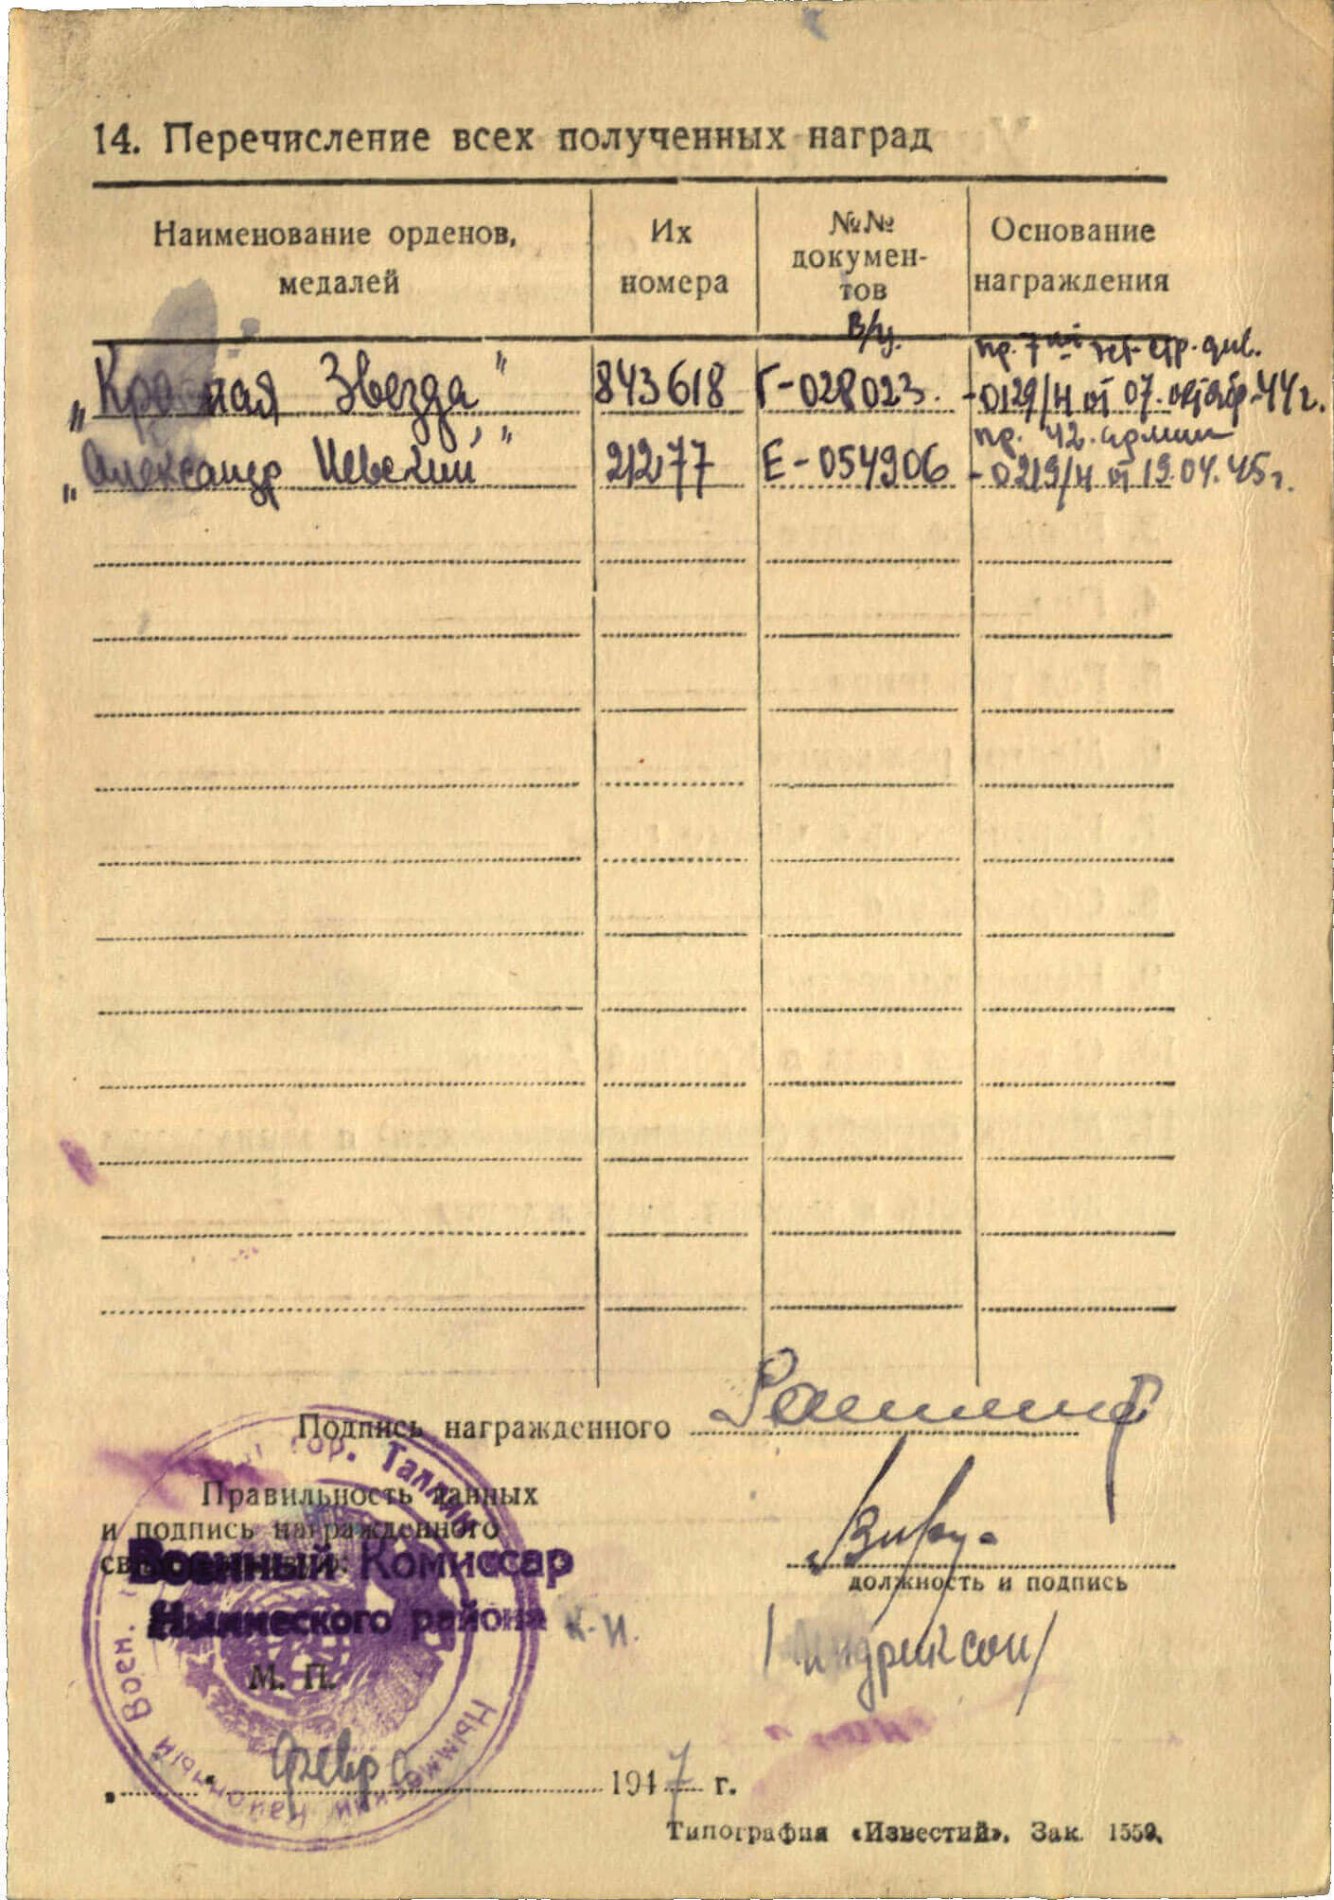 14. Перечисление всех полученных наград
Наименование орденов, медалей
Их номера
№№ документов
В/у.
Основание награждения
„Красная Звезда" 843618 Г-028023. пр. 7ой эст. стр. див. -0129/н от 07. октябр-44г.
„Александр Невский" 21277 Е-054906 пр. 42. армии -0219/н от 19.04.45г.
Подпись награжденного
Правильность данных
и подпись награжденного
Военный Комиссар
Нымнеского района к-н.
должность и подпись
/Индриксон/
М. П.
гор. Таллин
Нымнеский Районный Воен.
„ " февр 1947 г.
Типография «Известий». Зак. 1559.